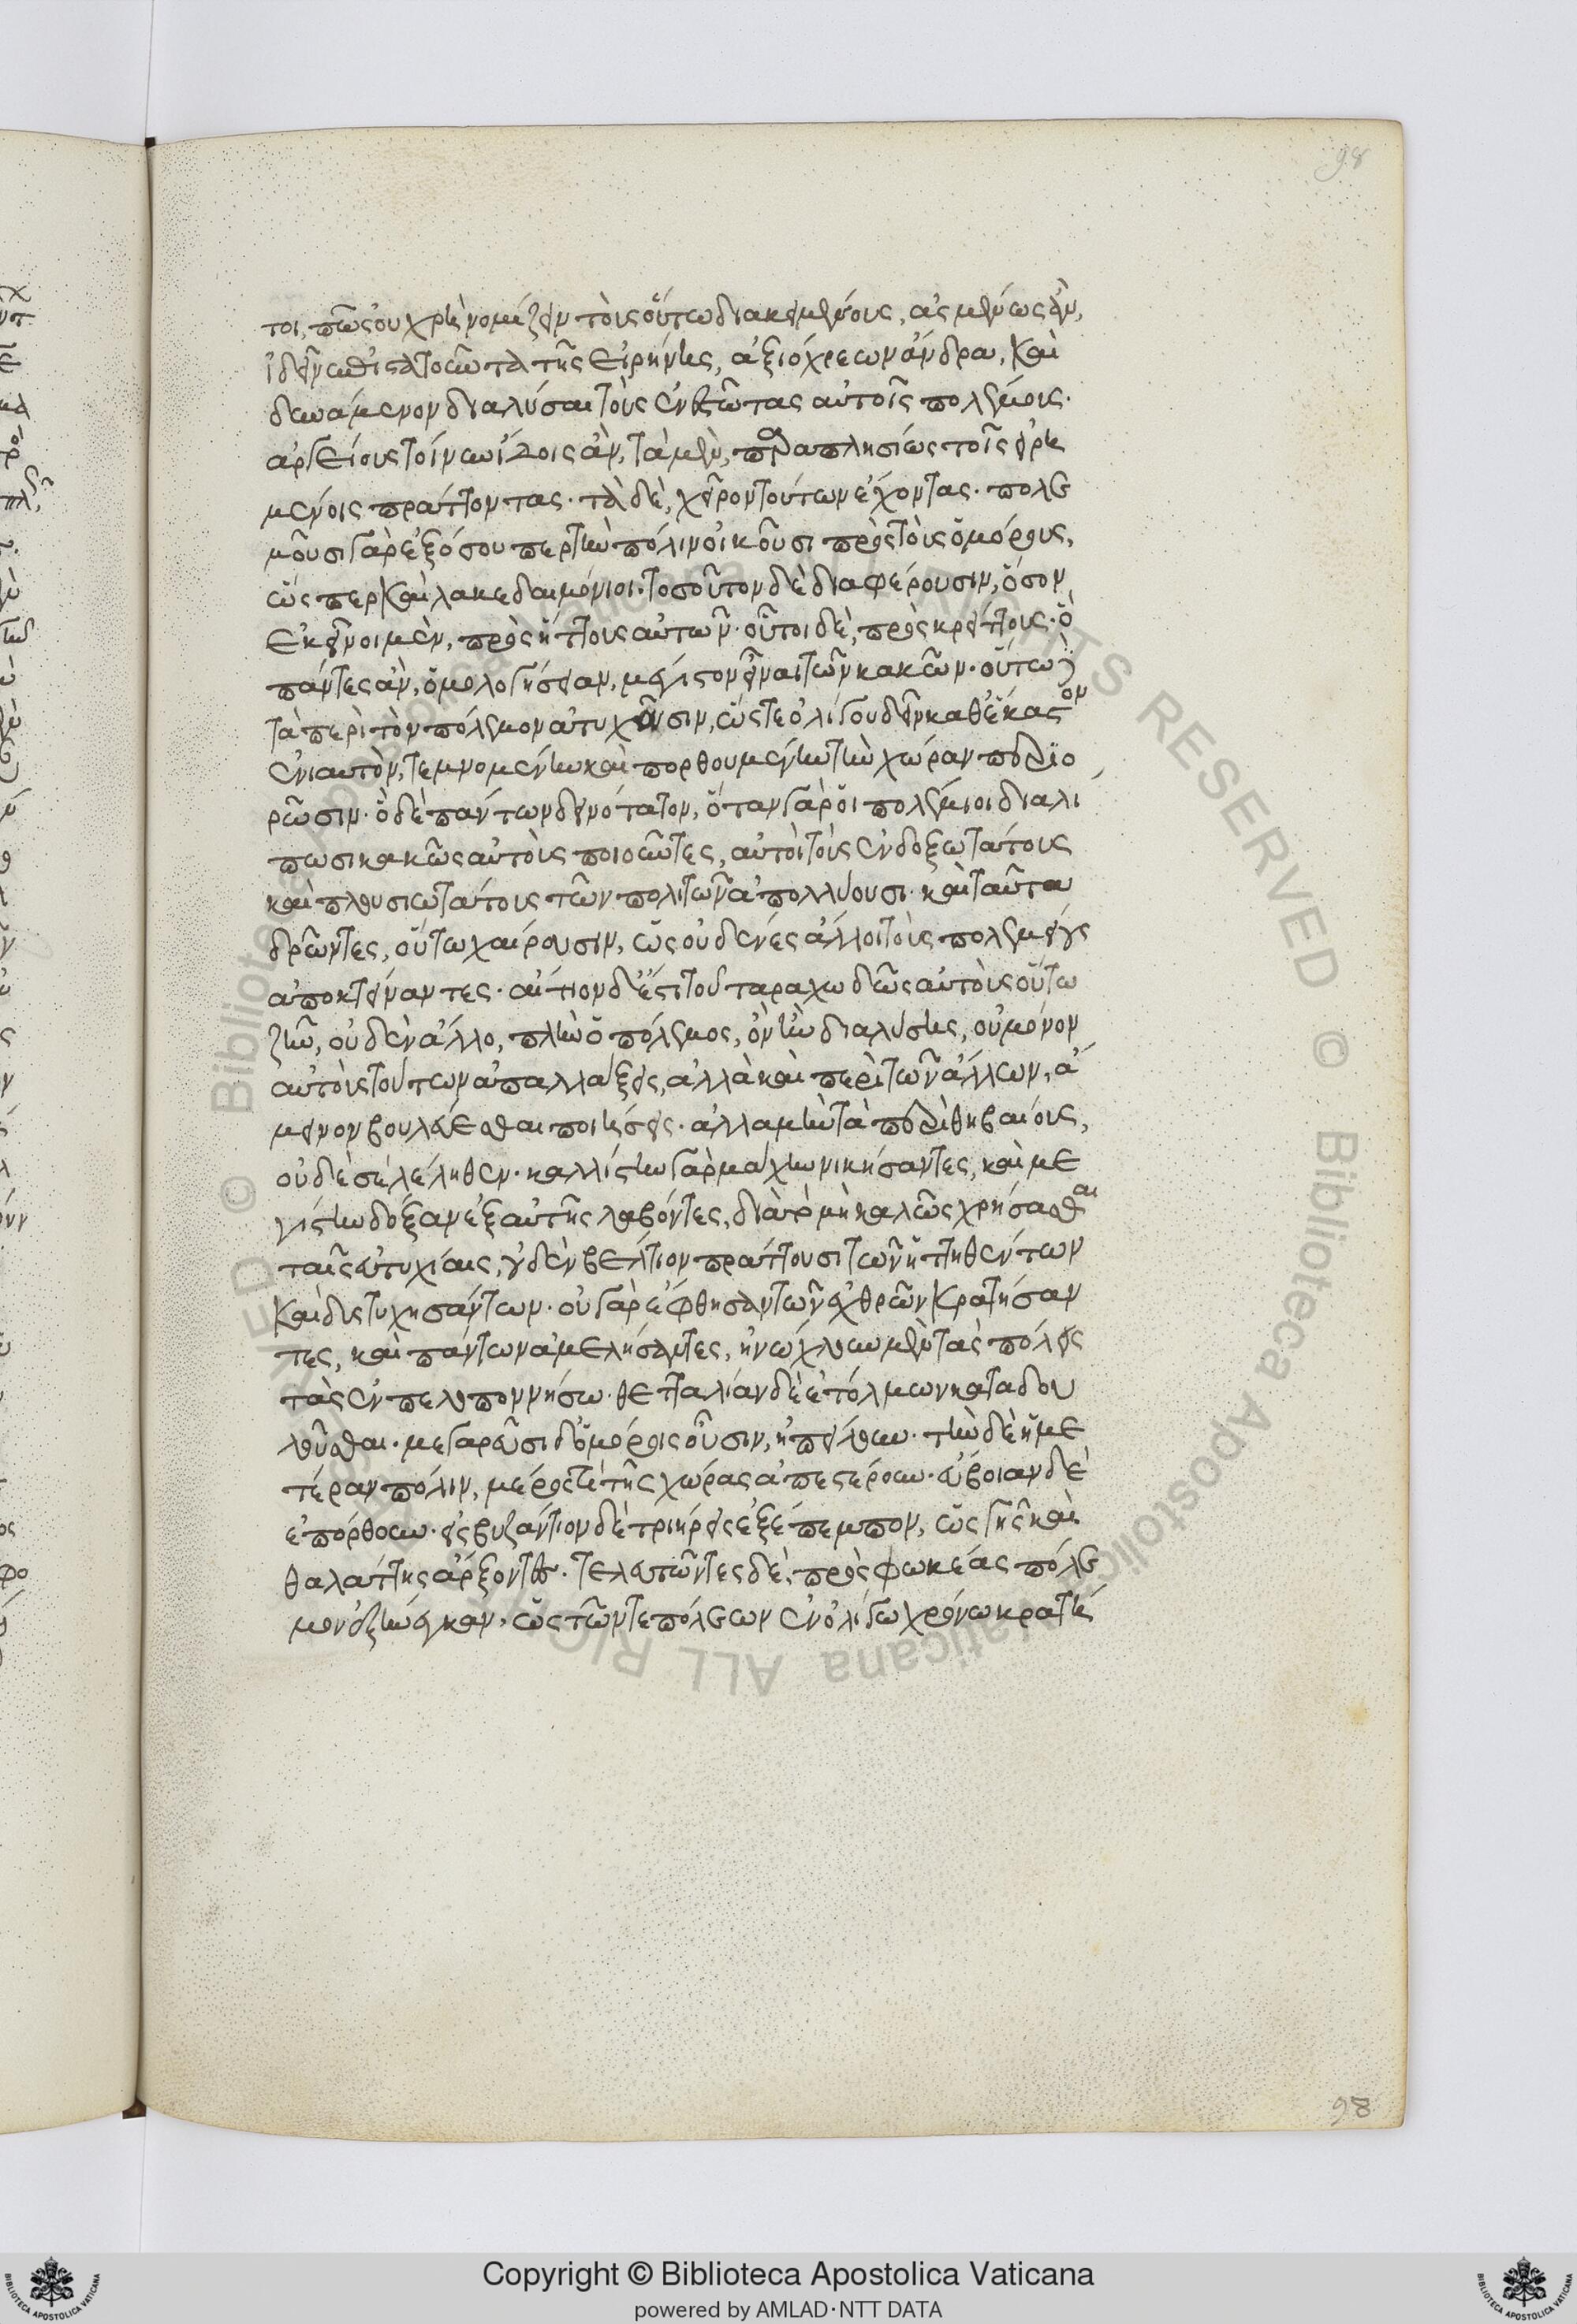 98
τοι, πῶς οὐ χρὴ νομίζειν τοὺς οὕτω διακειμένους, ἀσμένως ἂν,
ἰδεῖν ἐπιστατοῦντα τῆς εἰρήνης, ἀξιόχρεων ἄνδρα, καὶ
δυνάμενον διαλῦσαι τοὺς ἐνεστῶτας αὐτοῖς πολέμους.
ἀργείους τοίνυν ἴδοις ἂν, τὰ μὲν, παραπλησίως τοῖς εἰρη
μένοις πράττοντας. τὰ δὲ, χεῖρον τούτων ἔχοντας. πολε
μοῦσι γὰρ ἐξ ὅσου περ τὴν πόλιν οἰκοῦσι πρὸς τοὺς ὁμόρους,
ὥσπερ καὶ λακεδαιμόνιοι. τοσοῦτον δὲ διαφέρουσιν, ὅσον
ἐκεῖνοι μὲν, πρὸς ἥττους αὐτῶν. οὗτοι δὲ, πρὸς κρείττους. ὃ
πάντες ἂν, ὁμολογήσειαν, μέγιστον εἶναι τῶν κακῶν. οὕτω δὲ
τὰ περὶ τὸν πόλεμον ἀτυχοῦσιν, ὥστε ὀλίγου δεῖν καθ' ἕκαστον
ἐνιαυτὸν, τεμνομένην καὶ πορθουμένην τὴν χώραν περιο
ρῶσιν. ὃ δὲ πάντων δεινότατον, ὅταν γὰρ οἱ πολέμιοι διαλί
πωσι κακῶς αὐτοὺς ποιοῦντες, αὐτοὶ τοὺς ἐνδοξωτάτους
καὶ πλουσιωτάτους τῶν πολιτῶν ἀπολλύουσι. καὶ ταῦτα
δρῶντες, οὕτω χαίρουσιν, ὡς οὐδένες ἄλλοι τοὺς πολεμίους
ἀποκτείναντες. αἴτιον δ' ἐστὶ τοῦ ταραχωδῶς αὐτοὺς οὕτω
ζῆν, οὐδὲν ἄλλο, πλὴν ὁ πόλεμος, ὃν ἢν διαλύσῃς, οὐ μόνον
αὐτοὺς τούτων ἀπαλλάξεις, ἀλλὰ καὶ περὶ τῶν ἄλλων, ἄ
μεινον βουλεύεσθαι ποιήσεις. ἀλλὰ μὴν τὰ περὶ θηβαίους,
οὐδὲ σὲ λέληθεν. καλλίστην γὰρ μάχην νικήσαντες, καὶ με
γίστην δόξαν ἐξ αὐτῆς λαβόντες, διὰ τὸ μὴ καλῶς χρῆσθαι
ταῖς εὐτυχίαις, οὐδὲν βέλτιον πράττουσι τῶν ἡττηθέντων
καὶ δυστυχησάντων. οὐ γὰρ ἔφθησαν τῶν ἐχθρῶν κρατήσαν
τες, καὶ πάντων ἀμελήσαντες, ἠνώχλουν μὲν τὰς πόλεις
τὰς ἐν πελοποννήσω. θετταλίαν δὲ ἐτόλμων καταδου
λοῦσθαι. μεγαρεῦσι δ' ὁμόροις οὖσιν, ἠπείλουν. τὴν δὲ ἡμε
τέραν πόλιν, μέρος τι τῆς χώρας ἀπεστέρουν. εὔβοιαν δὲ
ἐπόρθουν. εἰς βυζάντιον δὲ τριήρεις ἐξέπεμπον, ὡς γῆς καὶ
θαλάττης ἄρξοντες. τελευτῶντες δὲ, πρὸς φωκέας πόλε
μον ἐξήνεγκαν, ὡς τῶν τε πόλεων ἐν ὀλίγω χρόνω κρατή
98
Copyright © Biblioteca Apostolica Vaticana
powered by AMLAD·NTT DATA